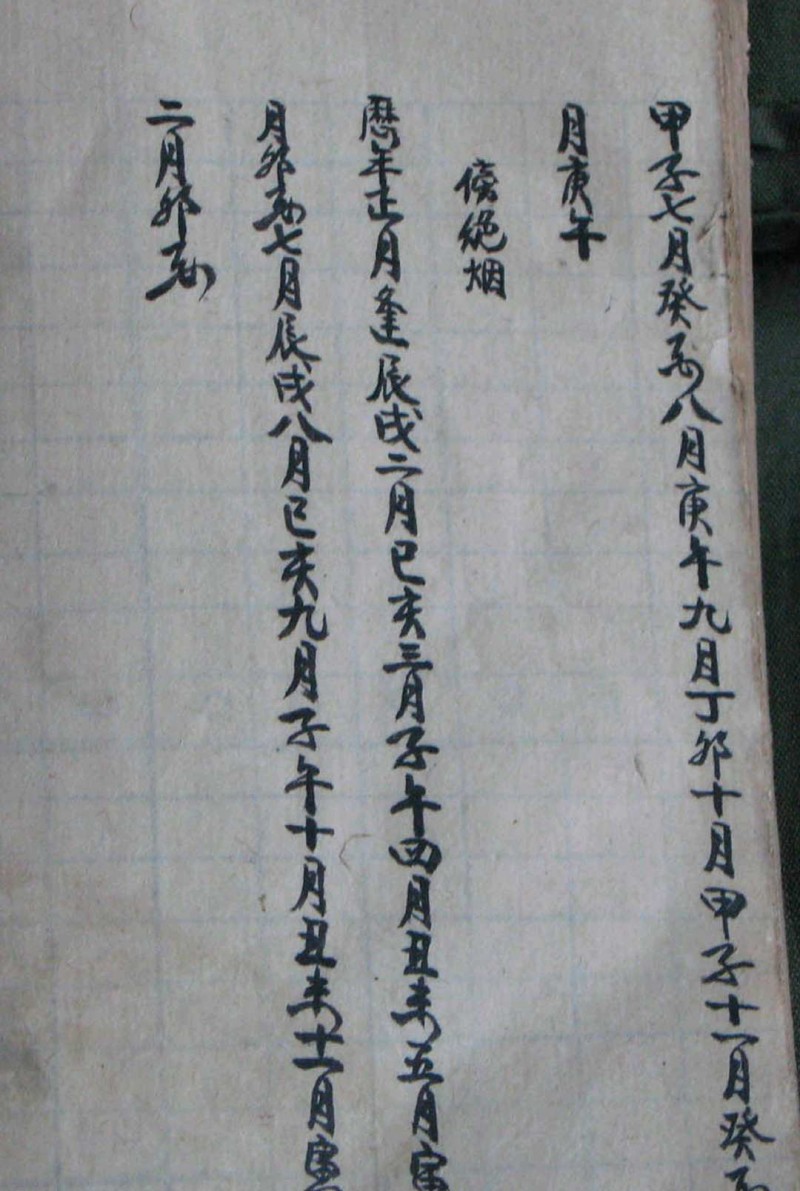 甲子七月癸酉八月庚午九月丁卯十月甲子十一月癸
月庚午
傍絶烟
曆年正月逢辰戌二月巳亥三月子午四月丑未五月寅
月卯酉七月辰戌八月巳亥九月子午十月丑未十一月寅
二月卯酉